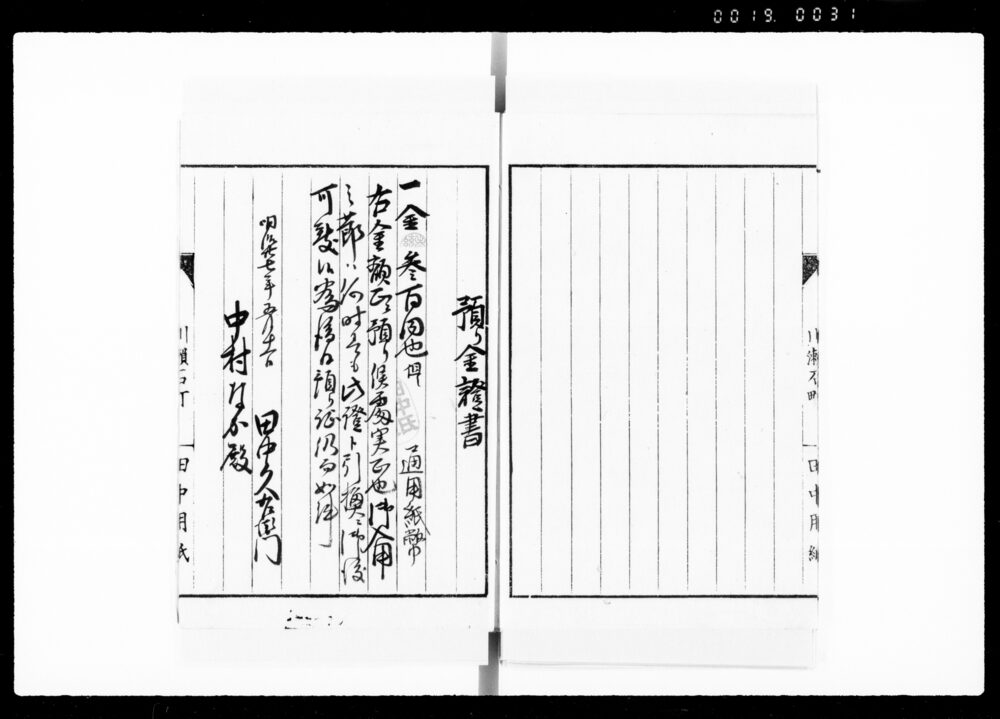 0019. 0031
預り金證書
一金参百円也 但 通用紙幣
右金額正ニ預り候處実正也御入用
之節ハ何時ニても此證ト引換ニ御渡
可致候為後日預り証仍而如件
明治廿七年五月
田中久右衛門
中村 殿
田中用紙
田中用紙